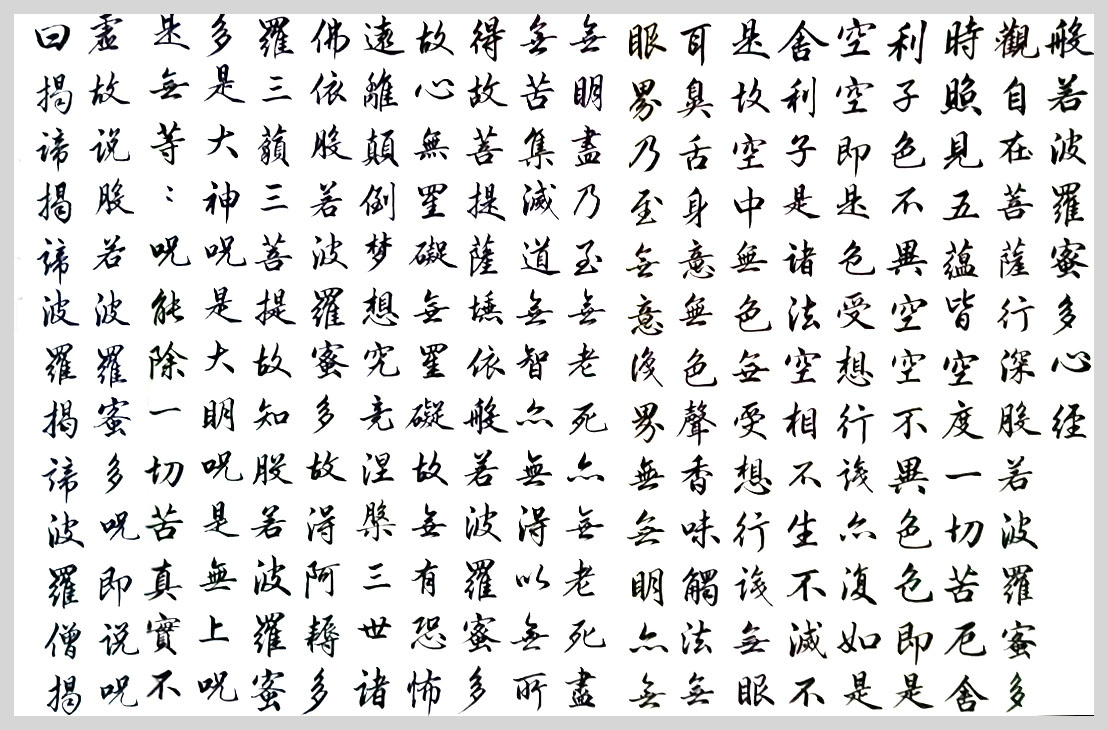 般若波羅蜜多心經
觀自在菩薩行深般若波羅蜜多
時照見五蘊皆空度一切苦厄舍
利子色不異空空不異色色即是
空空即是色受想行識亦復如是
舍利子是諸法空相不生不滅不
是故空中無色無受想行識無眼
耳鼻舌身意無色聲香味觸法無
眼界乃至無意識界無無明亦無
無明盡乃至無老死亦無老死盡
無苦集滅道無智亦無得以無所
得故菩提薩埵依般若波羅蜜多
故心無罣礙無罣礙故無有恐怖
遠離顛倒梦想究竟涅槃三世諸
佛依般若波羅蜜多故得阿耨多
羅三藐三菩提故知般若波羅蜜
多是大神呪是大明呪是無上呪
是無等：呪能除一切苦真實不
虛故说般若波羅蜜多呪即说呪
曰揭諦揭諦波羅揭諦波羅僧揭